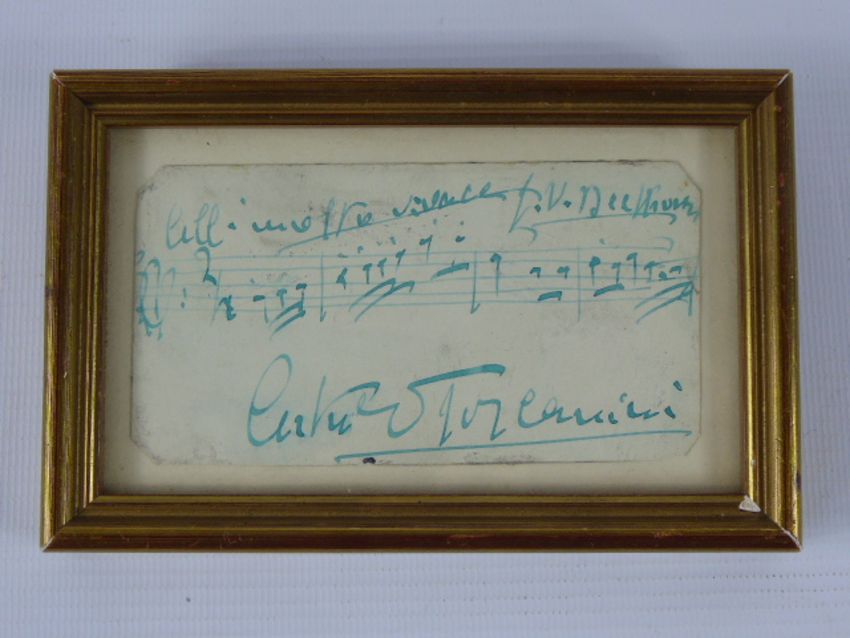 All: molto vivace L. V. Beethoven
Arturo Toscanini